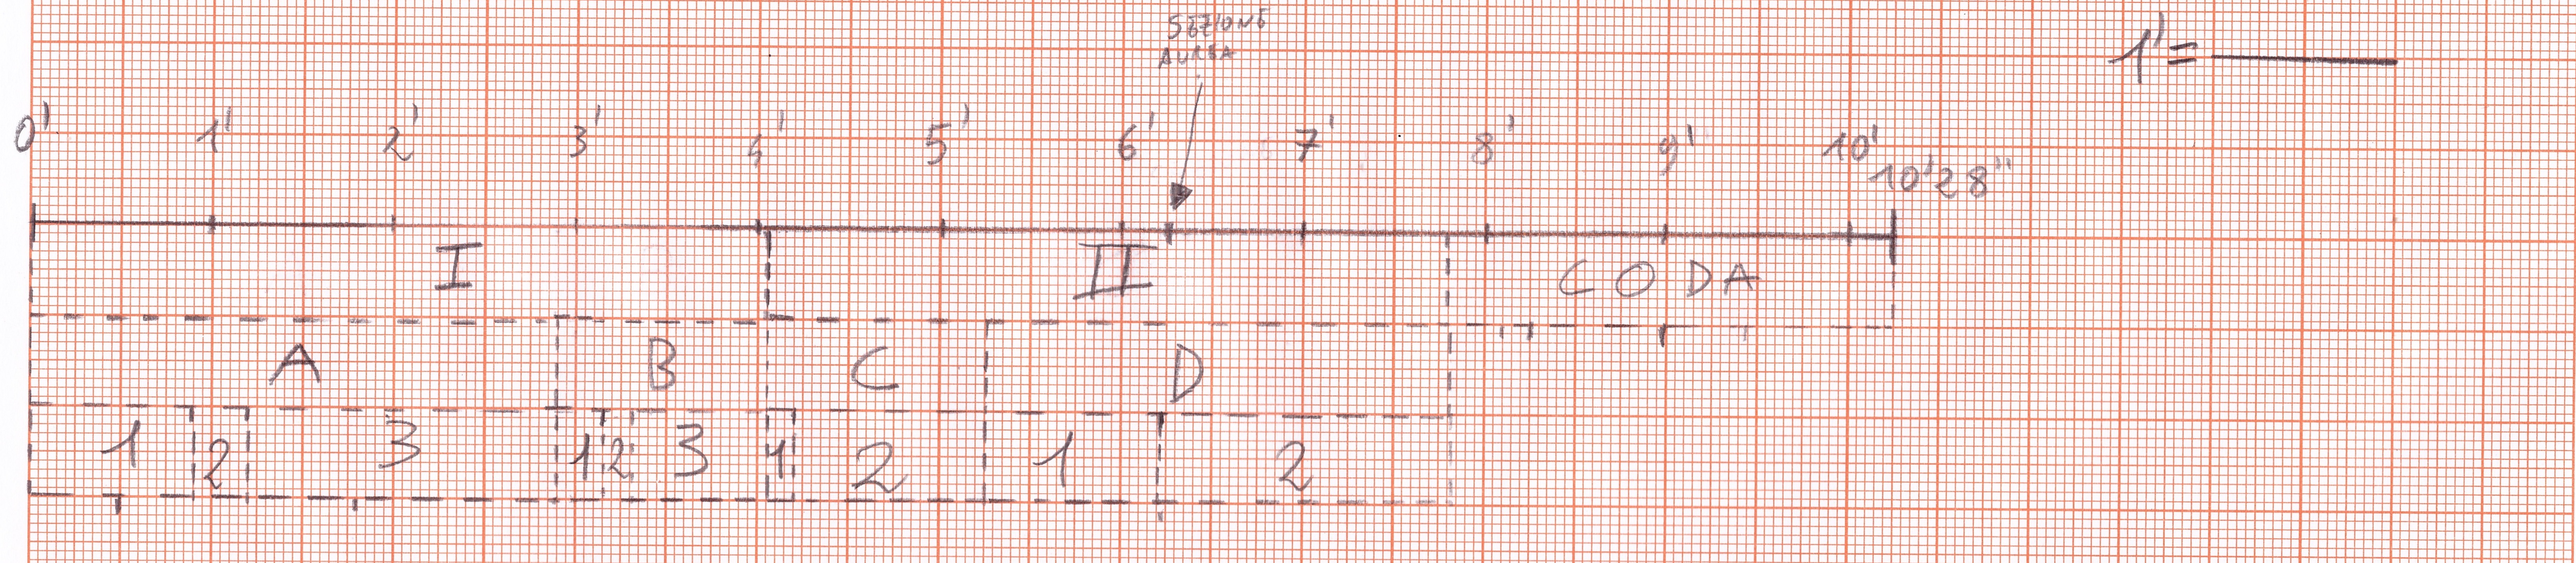 SEZIONE
AUREA
1' =
0' 1' 2' 3' 4' 5' 6' 7' 8' 9' 10'
10'28"
I II CODA
A B C D
1 2 3 1 2 3 1 2 1 2